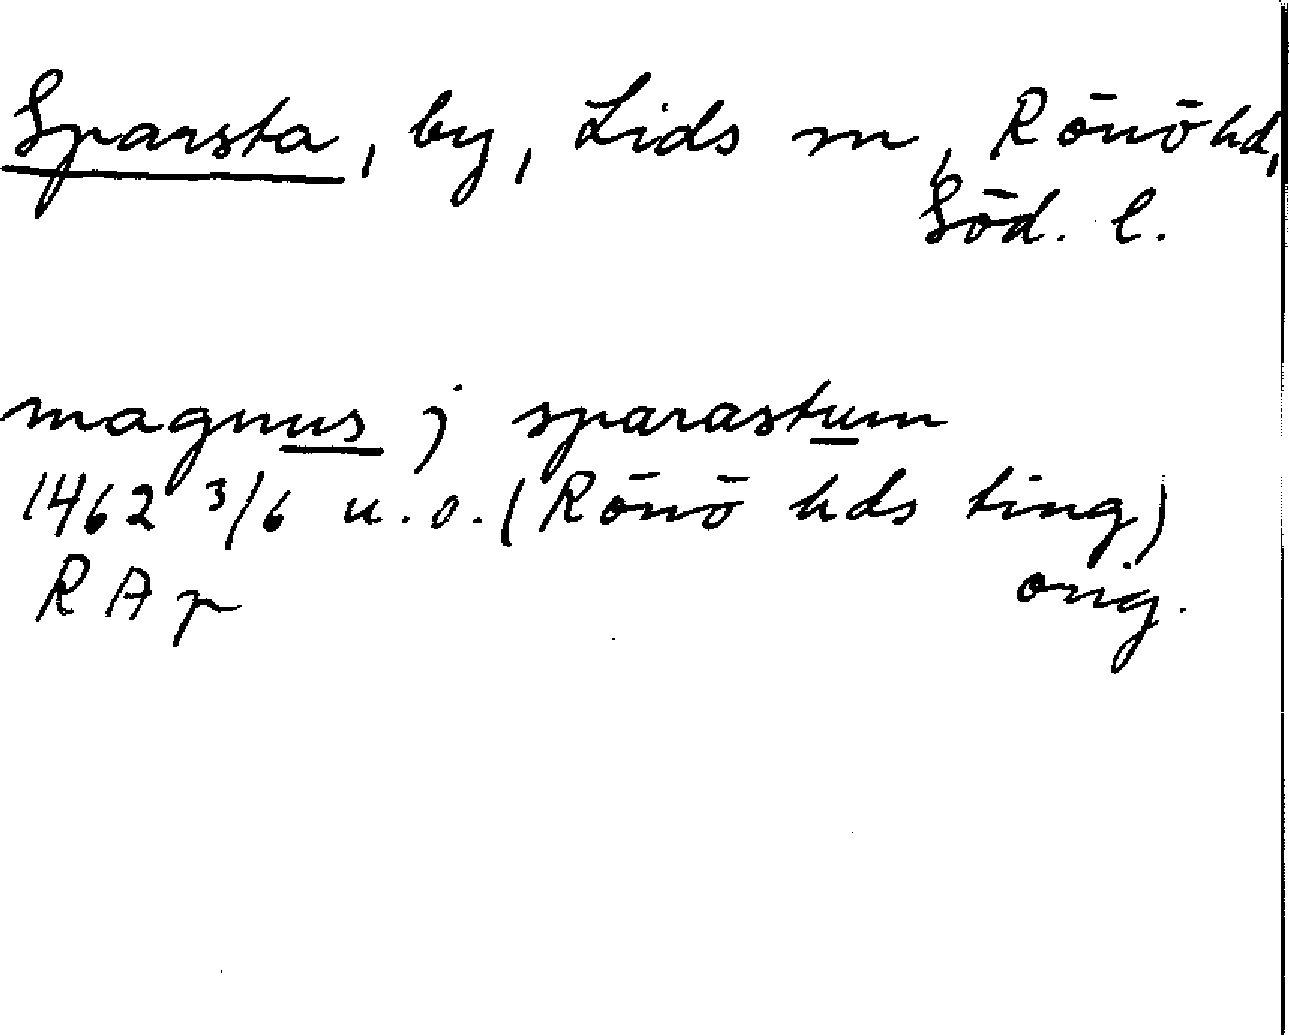 Sparsta, by, Lids sn, Rönö hd,
Söd. l.
magnus j sparastum
1462 3/6 u.o. (Rönö hds ting)
RAp orig.